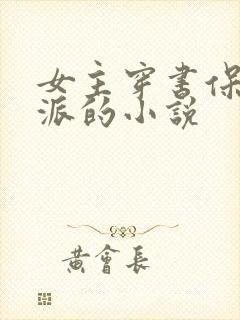 女主穿书保
派的小說
黄會長